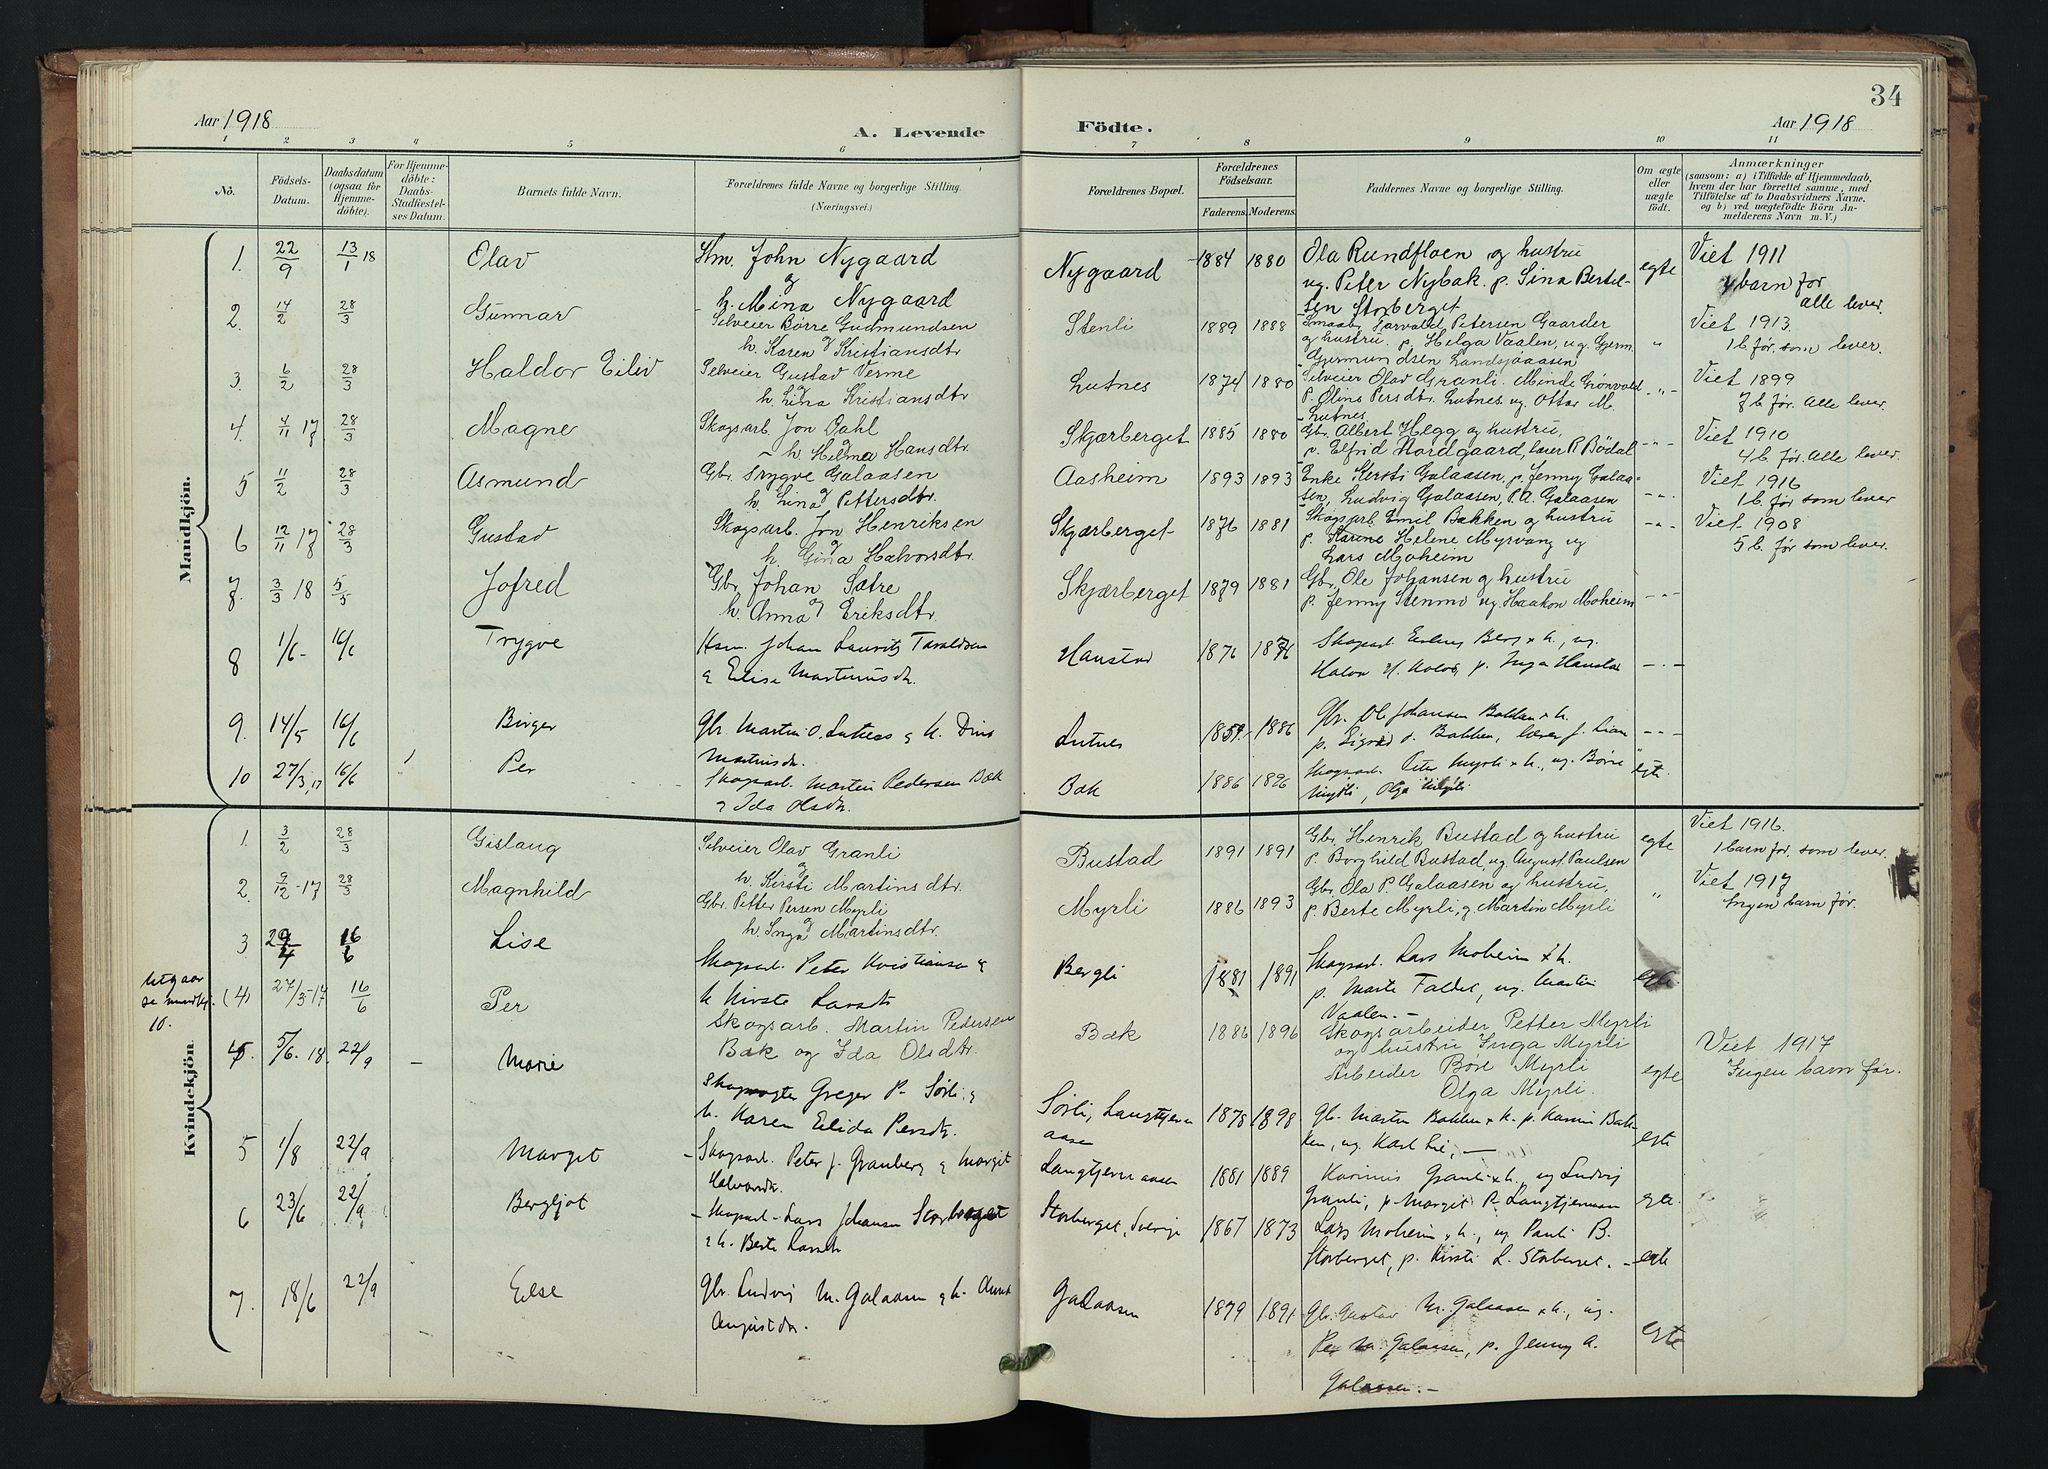 34
Aar 1918
A. Levende
Födte.
Aar 1918
1 2 3 4 5 6 7 8 9 10 11
No.
Födsels-
Datum.
Daabsdatum
(ogsaa for
Hjemme-
döbte).
For Hjemme-
döbte:
Daabs-
Stadfæstel-
ses Datum.
Barnets fulde Navn.
Forældrenes fulde Navne og borgerlige Stilling.
(Næringsvei.)
Forældrenes Bopæl.
Forældrenes
Födselsaar.
Faderens. Moderens.
Faddernes Navne og borgerlige Stilling.
Om ægte
eller
uægte
födt.
Anmærkninger
(saasom: a) i Tilfælde af Hjemmedaab,
hvem der har forrettet samme, med
Tilföielse af to Daabsvidners Navne,
og b) ved uægtefödte Börn An-
melderens Navn m. V.)
Mandkjön.
1. 22/9 13/1 18 Olav
John Nygaard
og
h. Mina Nygaard
Nygaard 1884 1880
Ola Rundfloen og hustru
ug. Peter Nybak. p. Sina Bertel-
sen Storberget
egte
Viet 1911
4 barn før
alle lever.
2. 14/2 28/3 Gunnar
Selveier Børre Gudmundsen
og
h. Karen Kristiansdtr
Stenli 1889 1888
Torvald Petersen Gaarder
og hustru. p. Helga Vaalen, ug. Gjerm.
Gjermundsen
"
Viet 1913.
1 b. før, som lever.
3. 6/2 28/3 Haldor Eiliv
Selveier Gustav Verme
h. Lina Kristiansdtr
Lutnes 1874 1880
Selveier Olav Granli. Minda Grønvold
p. Olina Persdtr. Lutnes. ug. Ottar M.
Lutnes
- " -
Viet 1899
7 b. før. Alle lever.
4. 4/11 17 28/3 Magne
Skogsarb. Jon Dahl
og
h. Helma Hansdtr.
Skjærberget 1885 1880
Gbr. Albert Hegg og hustru,
p. Elfrid Nordgaard, lærer P. Bödal
- " -
Viet 1910
4 b. før. Alle lever.
5 11/2 28/3 Asmund
Gbr. Trygve Galaasen
og
h. Lina Pettersdtr.
Aasheim 1893 1893
Enke Kirsti Galaasen, p. Jenny Galaa-
sen, Ludvig Galaasen, P. A. Galaasen
- " -
Viet 1916
1 b. før som lever
6 12/11 17 28/3 Gustav
Skogsarb. Jon Henriksen
og
h. Gina Halvorsdtr.
Skjærberget 1876 1881
Skogsarb. Emil Bakken og hustru
p. Karine Helene Myrvang ug
Lars Moheim
- " -
Viet 1908
5 b. før som lever.
7. 3/3 18 5/5 Jofred
Gbr. Johan Sætre
og
h. Anna Eriksdtr.
Skjærberget 1879 1881
Gbr. Ole Johansen og hustru
p. Jenny Stenmo ug. Haakon Moheim
- " -
8 1/6 - 16/6 Trygve
Johan Lauritz Taraldsen
& Elise Martinusdtr.
1876 1876
Skogsarb. Erling Berg & h., ug.
p. Inga
- " -
9. 14/5 16/6 Birger
Gbr. Martin O. Lutnes & h. Dina
Martinsdtr.
Lutnes 1854 1886
Gbr. Ol. Johansen Bakken & h.
p. Sigrid O. Bakken, lærer J. Lian
- " -
10 27/3, 17 16/6 Per
Skogsarb. Martin Pedersen Bæk
& Ida Olsdtr.
Bæk 1886 1896
Skogsarb. Peter Myrli & h., ug. Børre
Myrli, Olga Myrli
egte
Kvindekjön.
1. 3/2 28/3 Gislaug
Selveier Olav Granli
og
h. Kirsti Martinsdtr.
Bustad 1891 1891
Gbr. Henrik Bustad og hustru
p. Borghild Bustad, ug. August Paulsen
egte
Viet 1916.
1 barn før. som lever.
2. 9/12 - 17 28/3 Magnhild
Gbr. Petter Persen Myrli
og
h. Inga Martinsdtr.
Myrli 1886 1893
Gbr. Ola P. Galaasen og hustru,
p. Berte Myrli, g. Martin Myrli
"
Viet 1917
Ingen barn før.
3 29/4 16/6 Lise
Skogsarb. Peter Kristiansen &
h Kirste Larsdtr
Bergli 1881 1891
Skogsarb. Lars Moheim & h.
p. Marte Faldet, ug. Martin
Vaalen. -
egte
Utgaar
se mandkj.
10.
(4) 27/3 - 17 16/6 Per
Skogsarb. Martin Pedersen
Bæk og Ida Olsdtr.
Bæk 1886 1896
Skogsarbeider Petter Myrli
og hustru Inga Myrli
Arbeider Böre Myrli
Olga Myrli.
egte
Viet 1917
Ingen barn før.
4. 5/6. 18. 22/9 - Marie
Skogvogter Greger P. Sørli &
h. Karen Elida Persdtr.
Sørli, Langtjern
aasen
1878 1898
Gbr. Martin Bakken & h. p. Karin Bak-
ken, ug. Karl Lie, -
egte
5 1/8 22/9 Marget
- Skogsarb. Peter J. Granberg & Marget
Halvorsdtr.
Langtjernaasen 1881 1889
Karinus Granli & h., ug Ludvig
Granli, p. Marget P. Langtjernaasen
egte.
6 23/6 22/9 Bergljot
- Skogsarb. Lars Johansen Storberget
& h. Berte Larsdtr
Storberget, Sverige 1867 1873
Lars Moheim & h., ug Pauli B.
Storberget, p. Kirsti L. Storberget. -
egte
7. 18/6 22/9 Else
Gbr. Ludvig M. Galaasen & h. Anna
Augustdtr.
Galaasen 1879 1891
Gbr. Gustav M. Galaasen & h., ug.
Per M. Galaasen, p. Jenny A.
Galaasen. -
egte